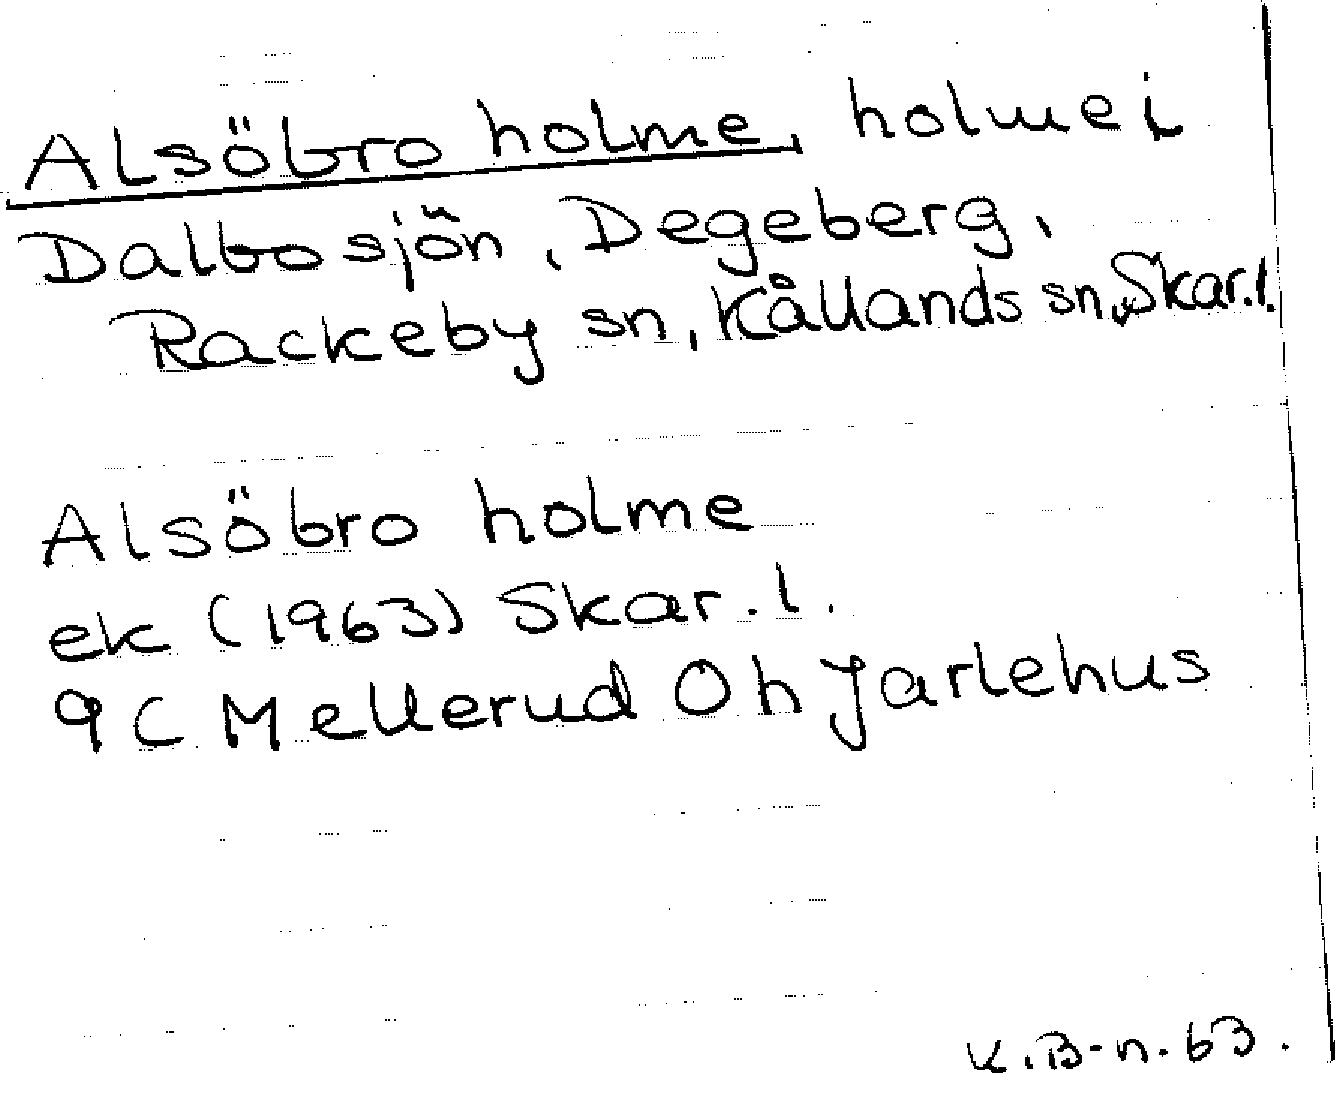 Alsöbro holme, holme i
Dalbosjön, Degeberg,
Rackeby sn, Kållands sn, Skar.l.
Alsöbro holme
ek (1963) Skar.l.
9C Mellerud Oh Jarlehus
K.B-n.63.